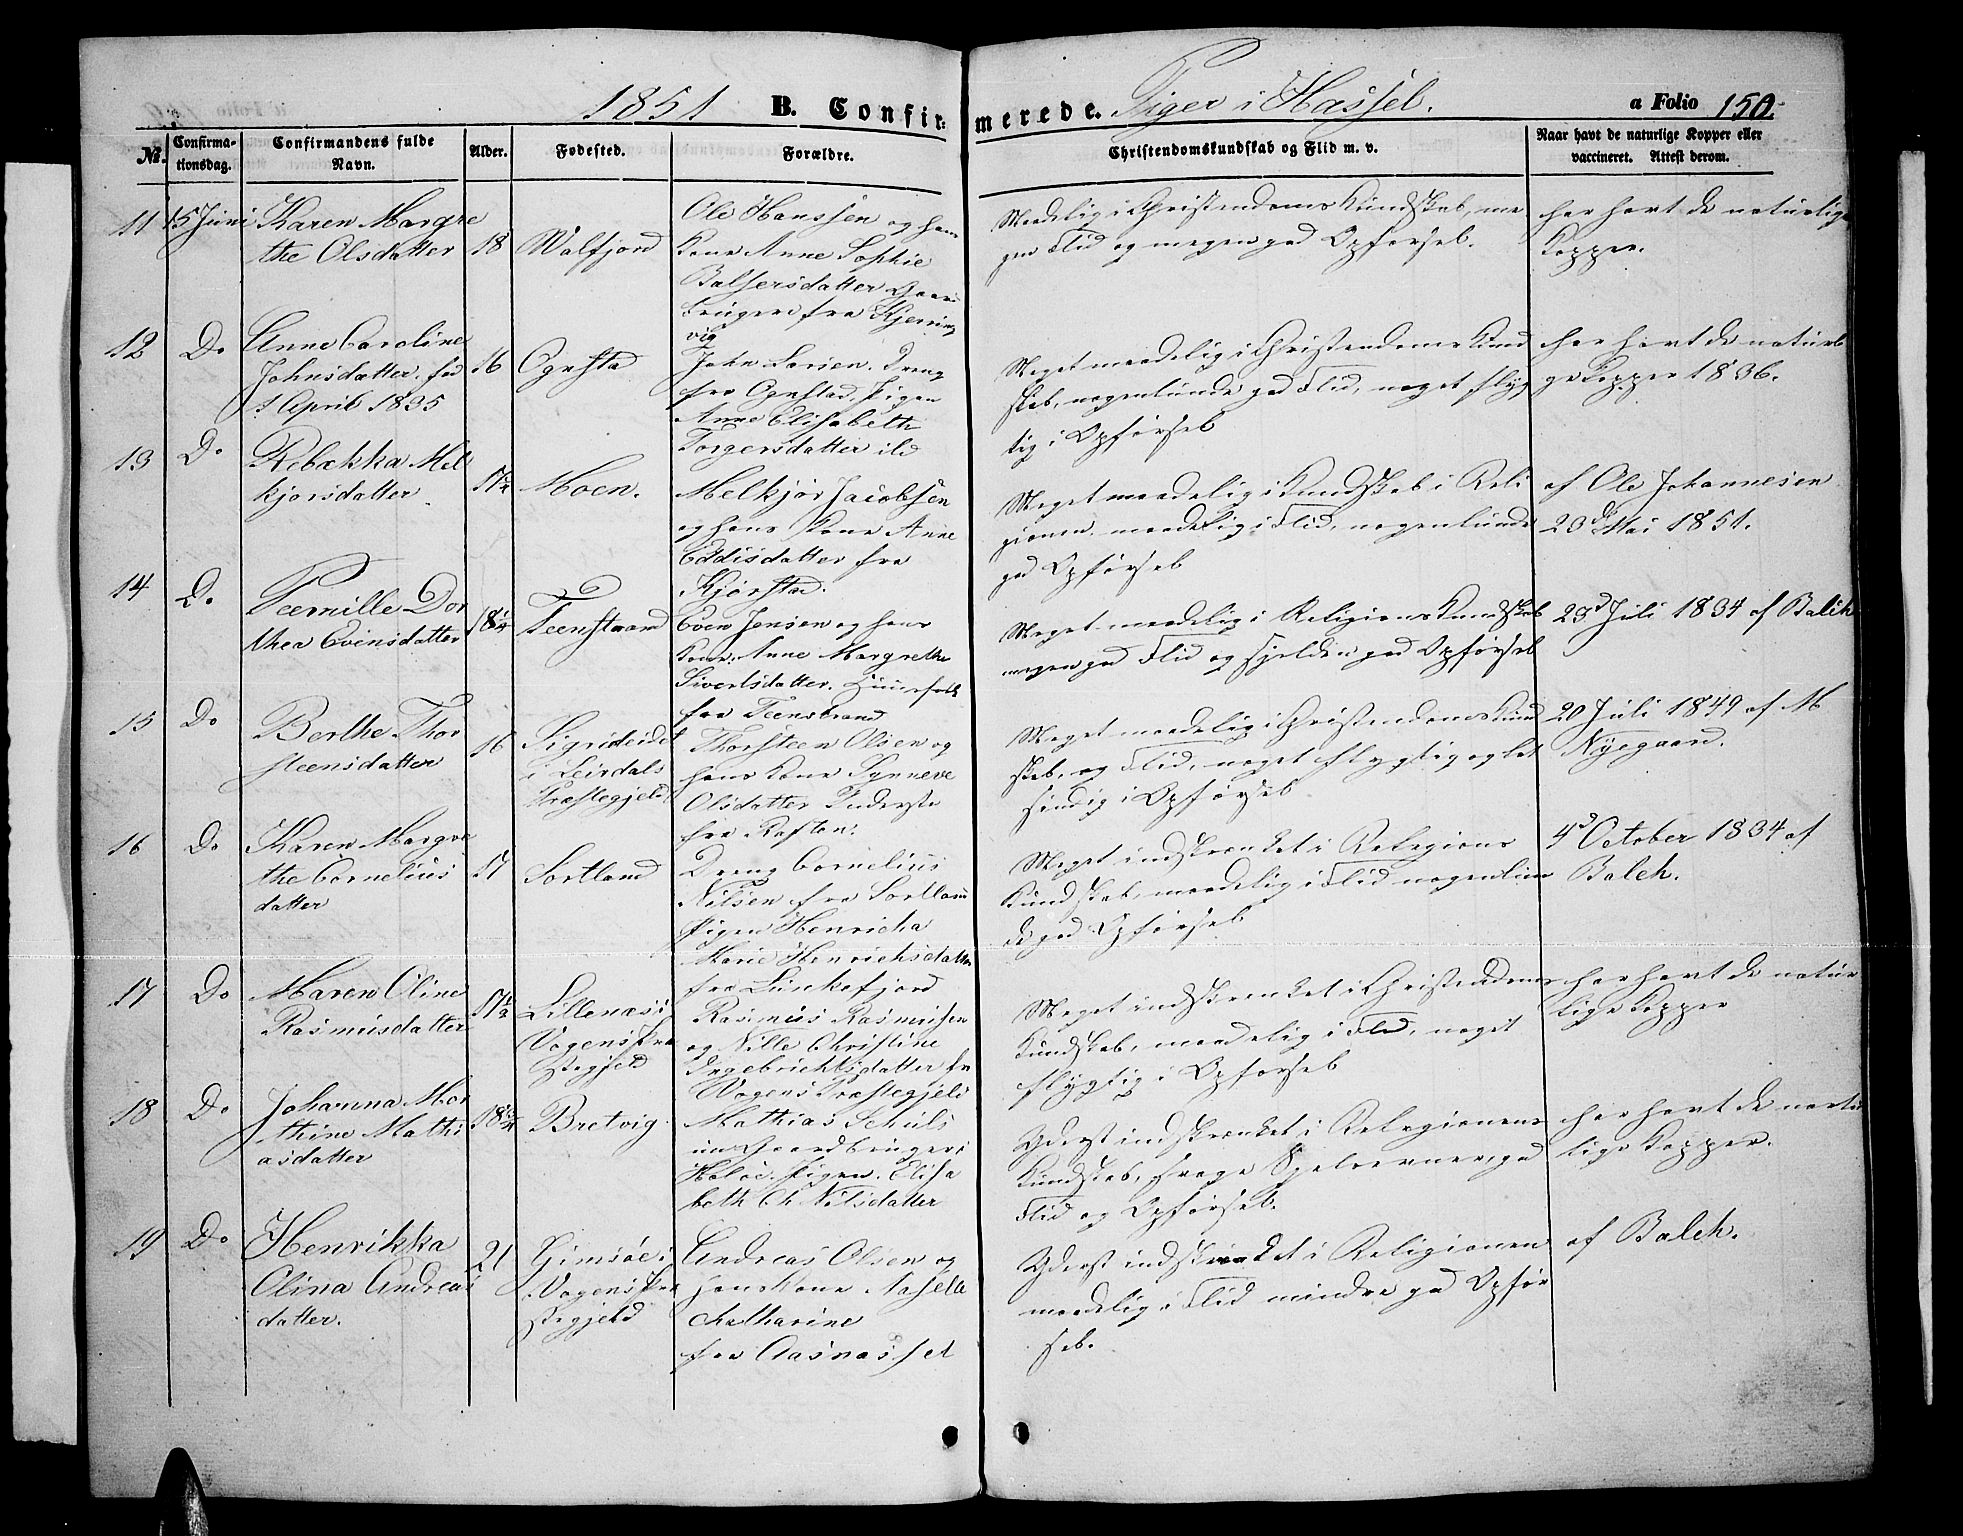 1851 B. Confirmerede. Piger i Hassel. a Folio 150.
No. Confirmationsdag. Confirmandens fulde Navn. Alder. Fødested. Forældre. Christendomskundskab og Flid m. v. Naar havt de naturlige Kopper eller vaccineret. Attest derom.
11 15 Juni Karen Margre
the Olsdatter 18 Walfjord
Ole Hanssen og hans
Kone Anne Sophie
Balsersdatter Gaard
brugere fra Kjerring
vig
Maadelig i Christendoms Kundskab, me
gen Flid og megen god Opførsel.
har havt de naturlige
Kopper.
12 Do Anne Caroline
Johnsdatter. fød
1 April 1835 16 Ognsta
John Larsen. Dreng
fra Ognstad. Pigen
Anne Elisabeth
Torgersdatter ild
Meget maadelig i Christendoms Kund
skab, nogenlunde god Flid, noget flyg
tig i Opførsel
har havt de naturli
ge Kopper 1836.
13 Do Rebækka Mel
kjorsdatter 17½ Moen.
Melkjør Jacobsen
og hans Kone Anne
Eddisdatter fra
Kjørstad.
Meget maadelig i Kundskab i Reli
gionen. maadelig i Flid, nogenlunde
god Opførsel
af Ole Johannesen
23de Mai 1851.
14 Do Peernille Dor
thea Evensdatter 18¼ Teenstrand
Even Jensen og hans
Kone. Anne Margrethe
Sivertsdatter. Huusfolk
fra Teenstrand
Meget maadelig i Religions Kundskab
megen god Flid og sjelden god Opførsel
23d Juli 1834 af Balch
15 Do Berthe Thor
steensdatter 16 Sigrideidet
i Leirdals
Præstegjeld
Thorsteen Olsen og
hans Kone Synneve
Olsdatter Inderste
fra Roften.
Meget maadelig i Christendoms Kund
skab, og Flid, noget flygtig og let
sindig i Opførsel
20 Juli 1849 af M
Nyegaard.
16 Do Karen Margre
the Cornelius
datter 17 Sortland
Dreng Cornelius
Nilsen fra Sortland
Pigen Henricha
Marie Henrichsdatter
fra Lunkefjord
Meget indskrænket i Religions
Kundskab, maadelig i Flid nogenlun
de god Opførsel
4d October 1834 af
Balch.
17 Do Maren Oline
Rasmusdatter 17½ Lillenæs i
Vogens Præ
stegjeld
Rasmus Rasmusen
og Nille Christine
Ingebrichtsdatter fra
Vogens Præstegjeld
Meget indskrænket i Christendoms
Kundskab, maadelig i Flid, noget
flygtig i Opførsel
har havt de natur
lige Kopper
18 Do Johanna Mar
thine Mathi
asdatter 18¾ Bretvig
Mathias Schuls
un Gaardbruger i
Haløe. Pigen. Elisa
beth Ch Nilsdatter
Yderst indskrænket i Religionens
Kundskab, svage Sjelsevner, god
Flid og Opførsel.
har havt de natur
lige Kopper.
19 Do Henrikka
Olina Andreas
datter. 21 Gimsøe i
Vogens Præ
stegjeld
Andreas Olsen og
hans Kone
Chatharine
fra Aasnasset
Yderst indskrænket i Religionen
maadelig i Flid mindre god Opfør
sel.
af Balch.